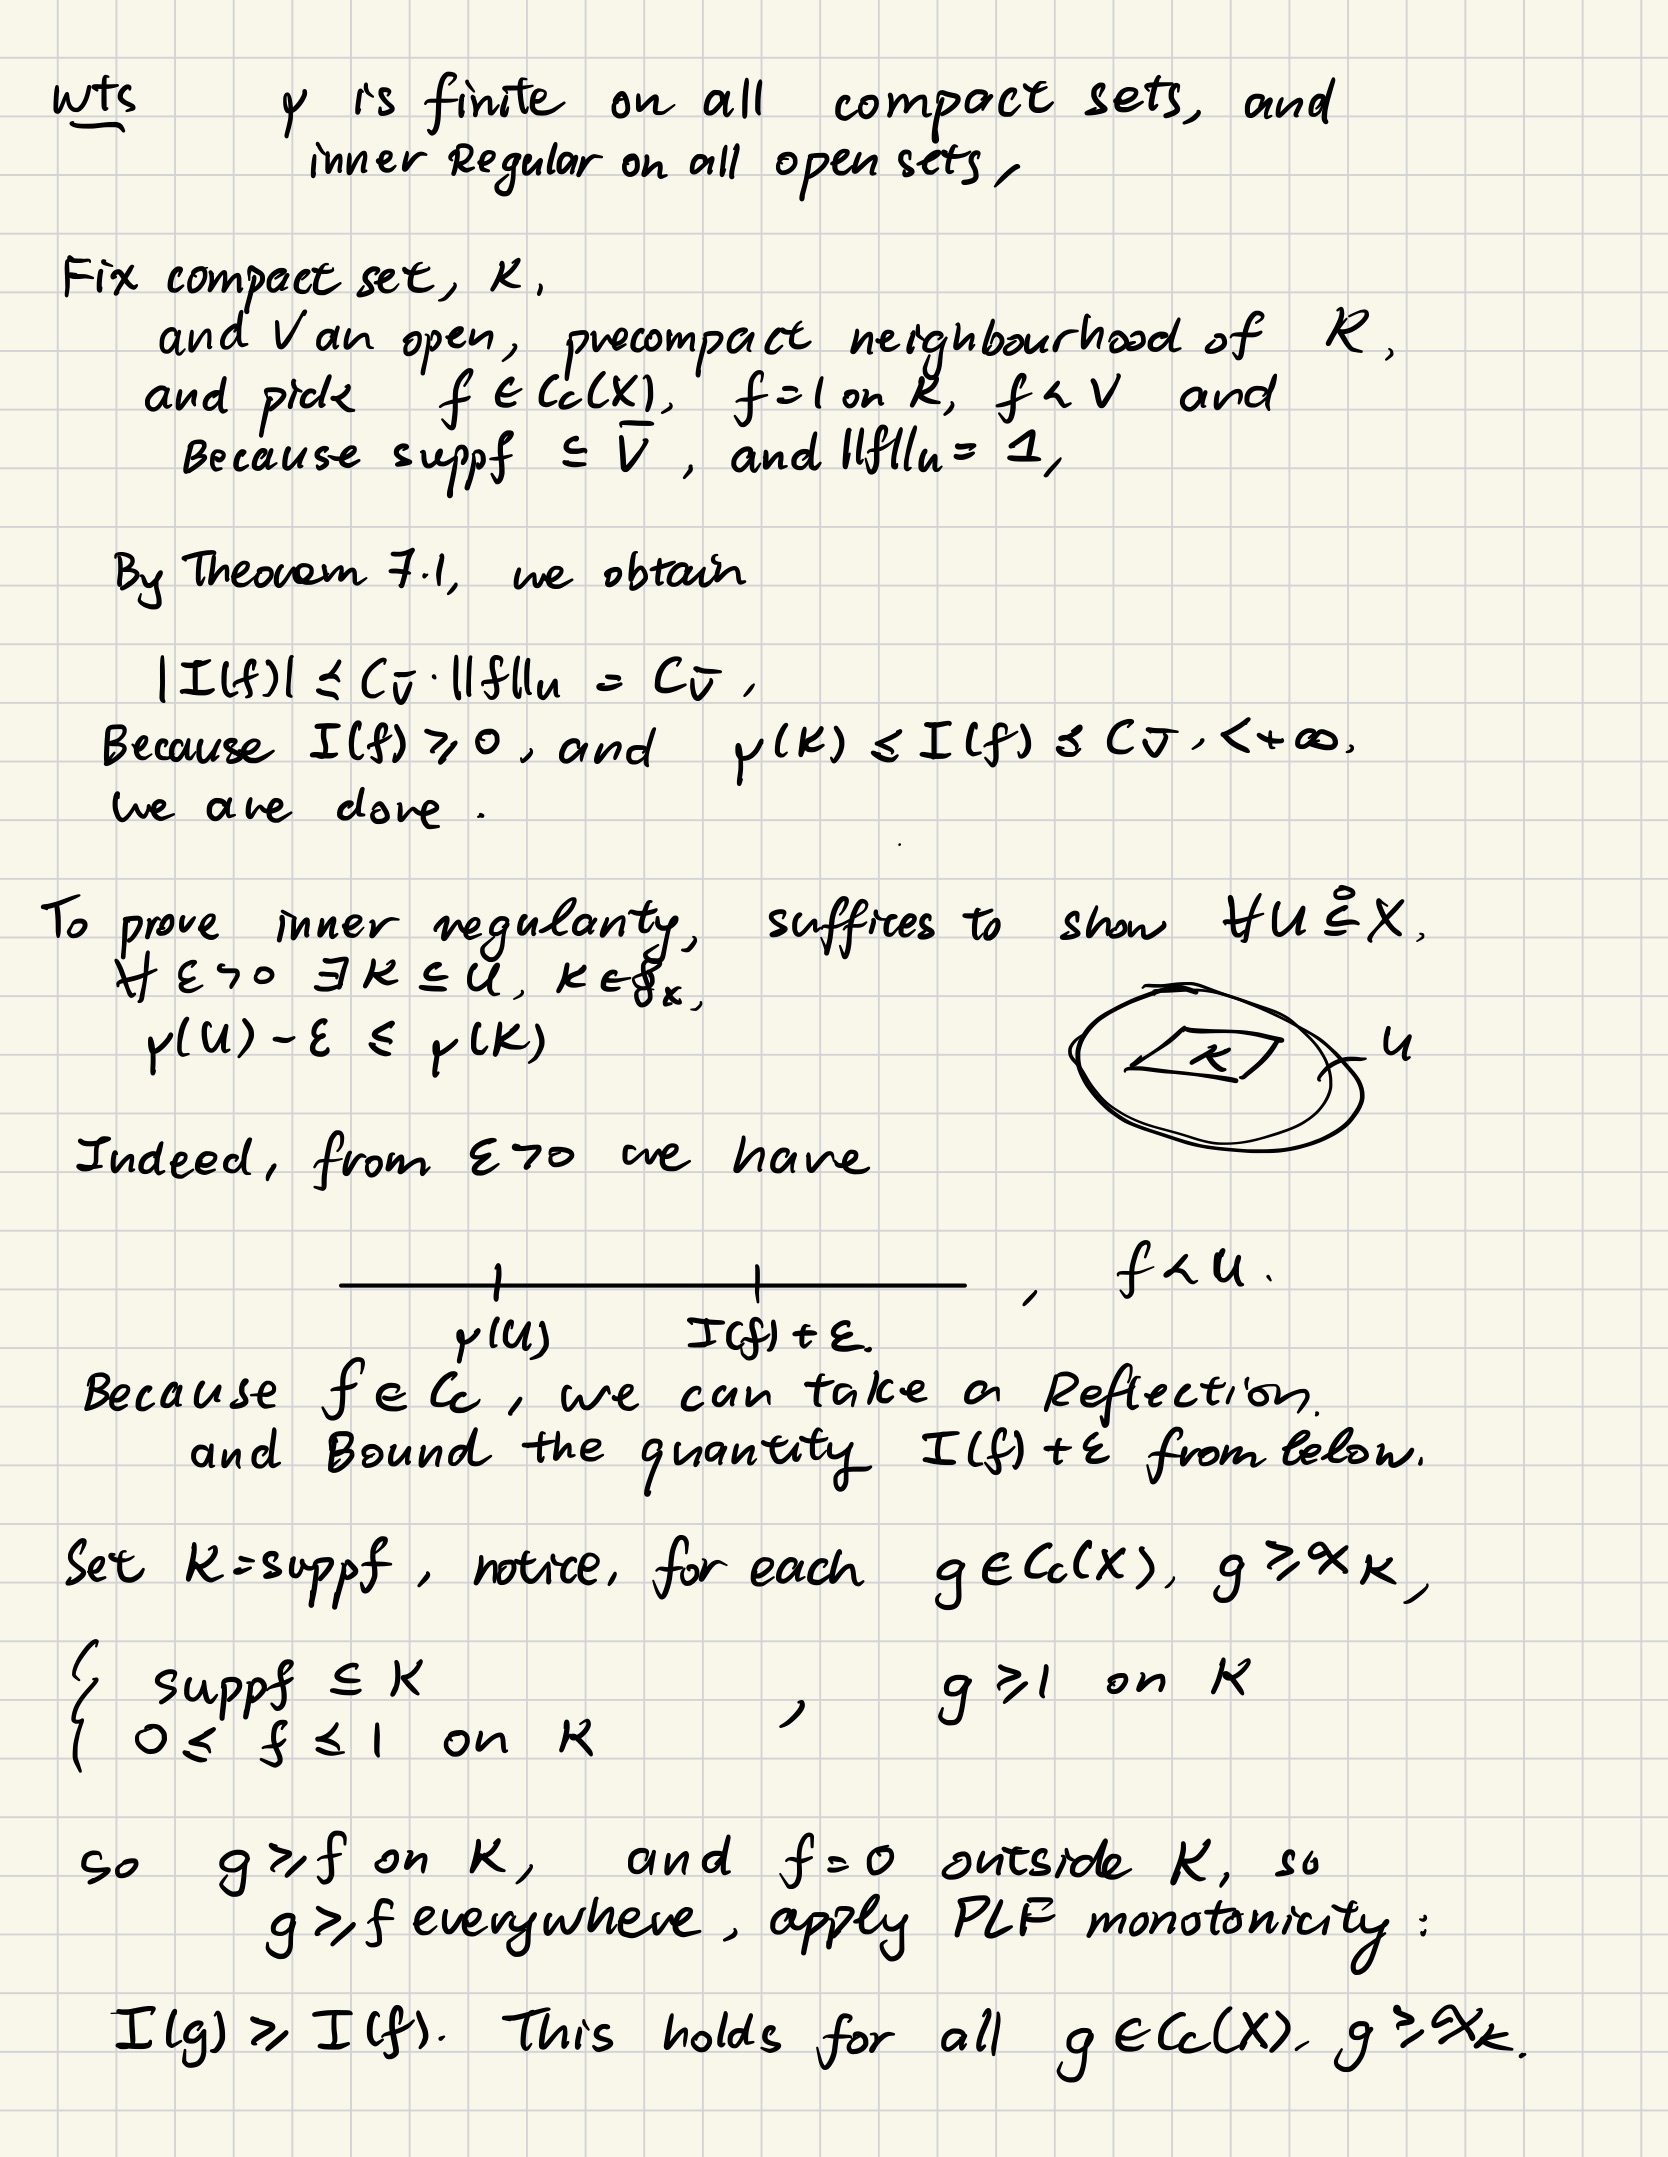 wts μ is finite on all compact sets, and
inner Regular on all open sets,
Fix compact set, K,
and V an open, precompact neighbourhood of K,
and pick f ∈ Cc(X), f=1 on K, f ≺ V and
Because suppf ⊆ V̅, and ||f||u = 1,
By Theorem 7.1, we obtain
|I(f)| ≤ C_V̅ · ||f||u = C_V̅,
Because I(f) ≥ 0, and μ(K) ≤ I(f) ≤ C_V̅, < +∞.
we are done.
To prove inner regularity, suffices to show ∀U ⊆̊ X,
∀ ε>0 ∃ K ⊆ U, K ∈
μ(U) - ε ≤ μ(K)
K
U
Indeed, from ε>0 we have
, f ≺ U.
μ(U) I(f) + ε.
Because f ∈ Cc, we can take a Reflection.
and Bound the quantity I(f) + ε from below.
Set K = suppf, notice, for each g ∈ Cc(X), g ≥ χ_K,
{ suppf ⊆ K , g ≥ 1 on K
0 ≤ f ≤ 1 on K
so g ≥ f on K, and f = 0 outside K, so
g ≥ f everywhere, apply PLF monotonicity:
I(g) ≥ I(f). This holds for all g ∈ Cc(X), g ≥ χ_K.